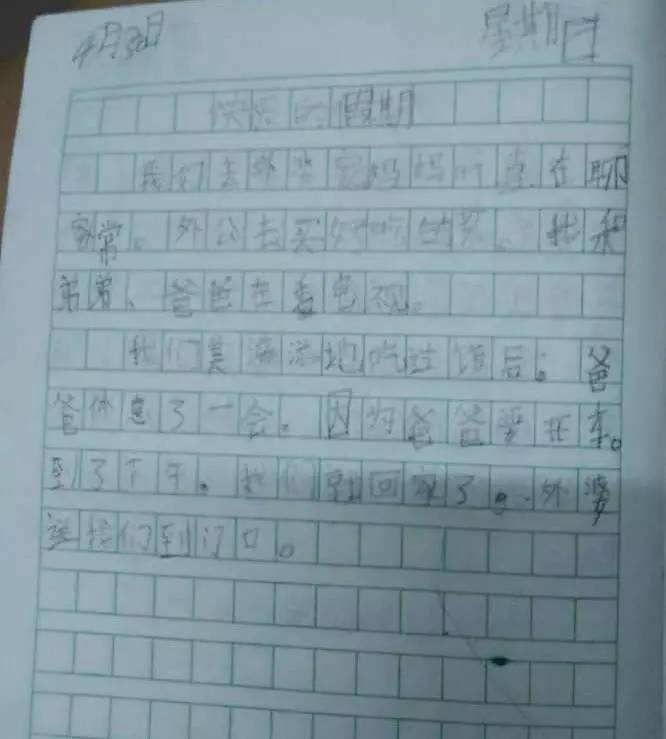 4月30日 星期日
快乐的假期
我们去外婆家妈妈一直在聊
家常。外公去买好吃的菜。我和
弟弟、爸爸在看电视。
我们美滋滋地吃过饭后，爸
爸休息了一会。因为爸爸要开车。
到了下午。我们就回家了。外婆
送我们到门口。